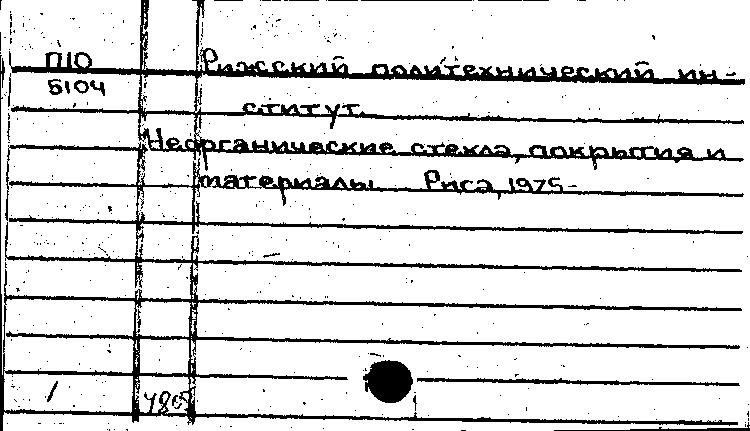 П10 Рижский политехнический ин-
5104 ститут.
Неорганические стекла, покрытия и
материалы Рига, 1975-
/